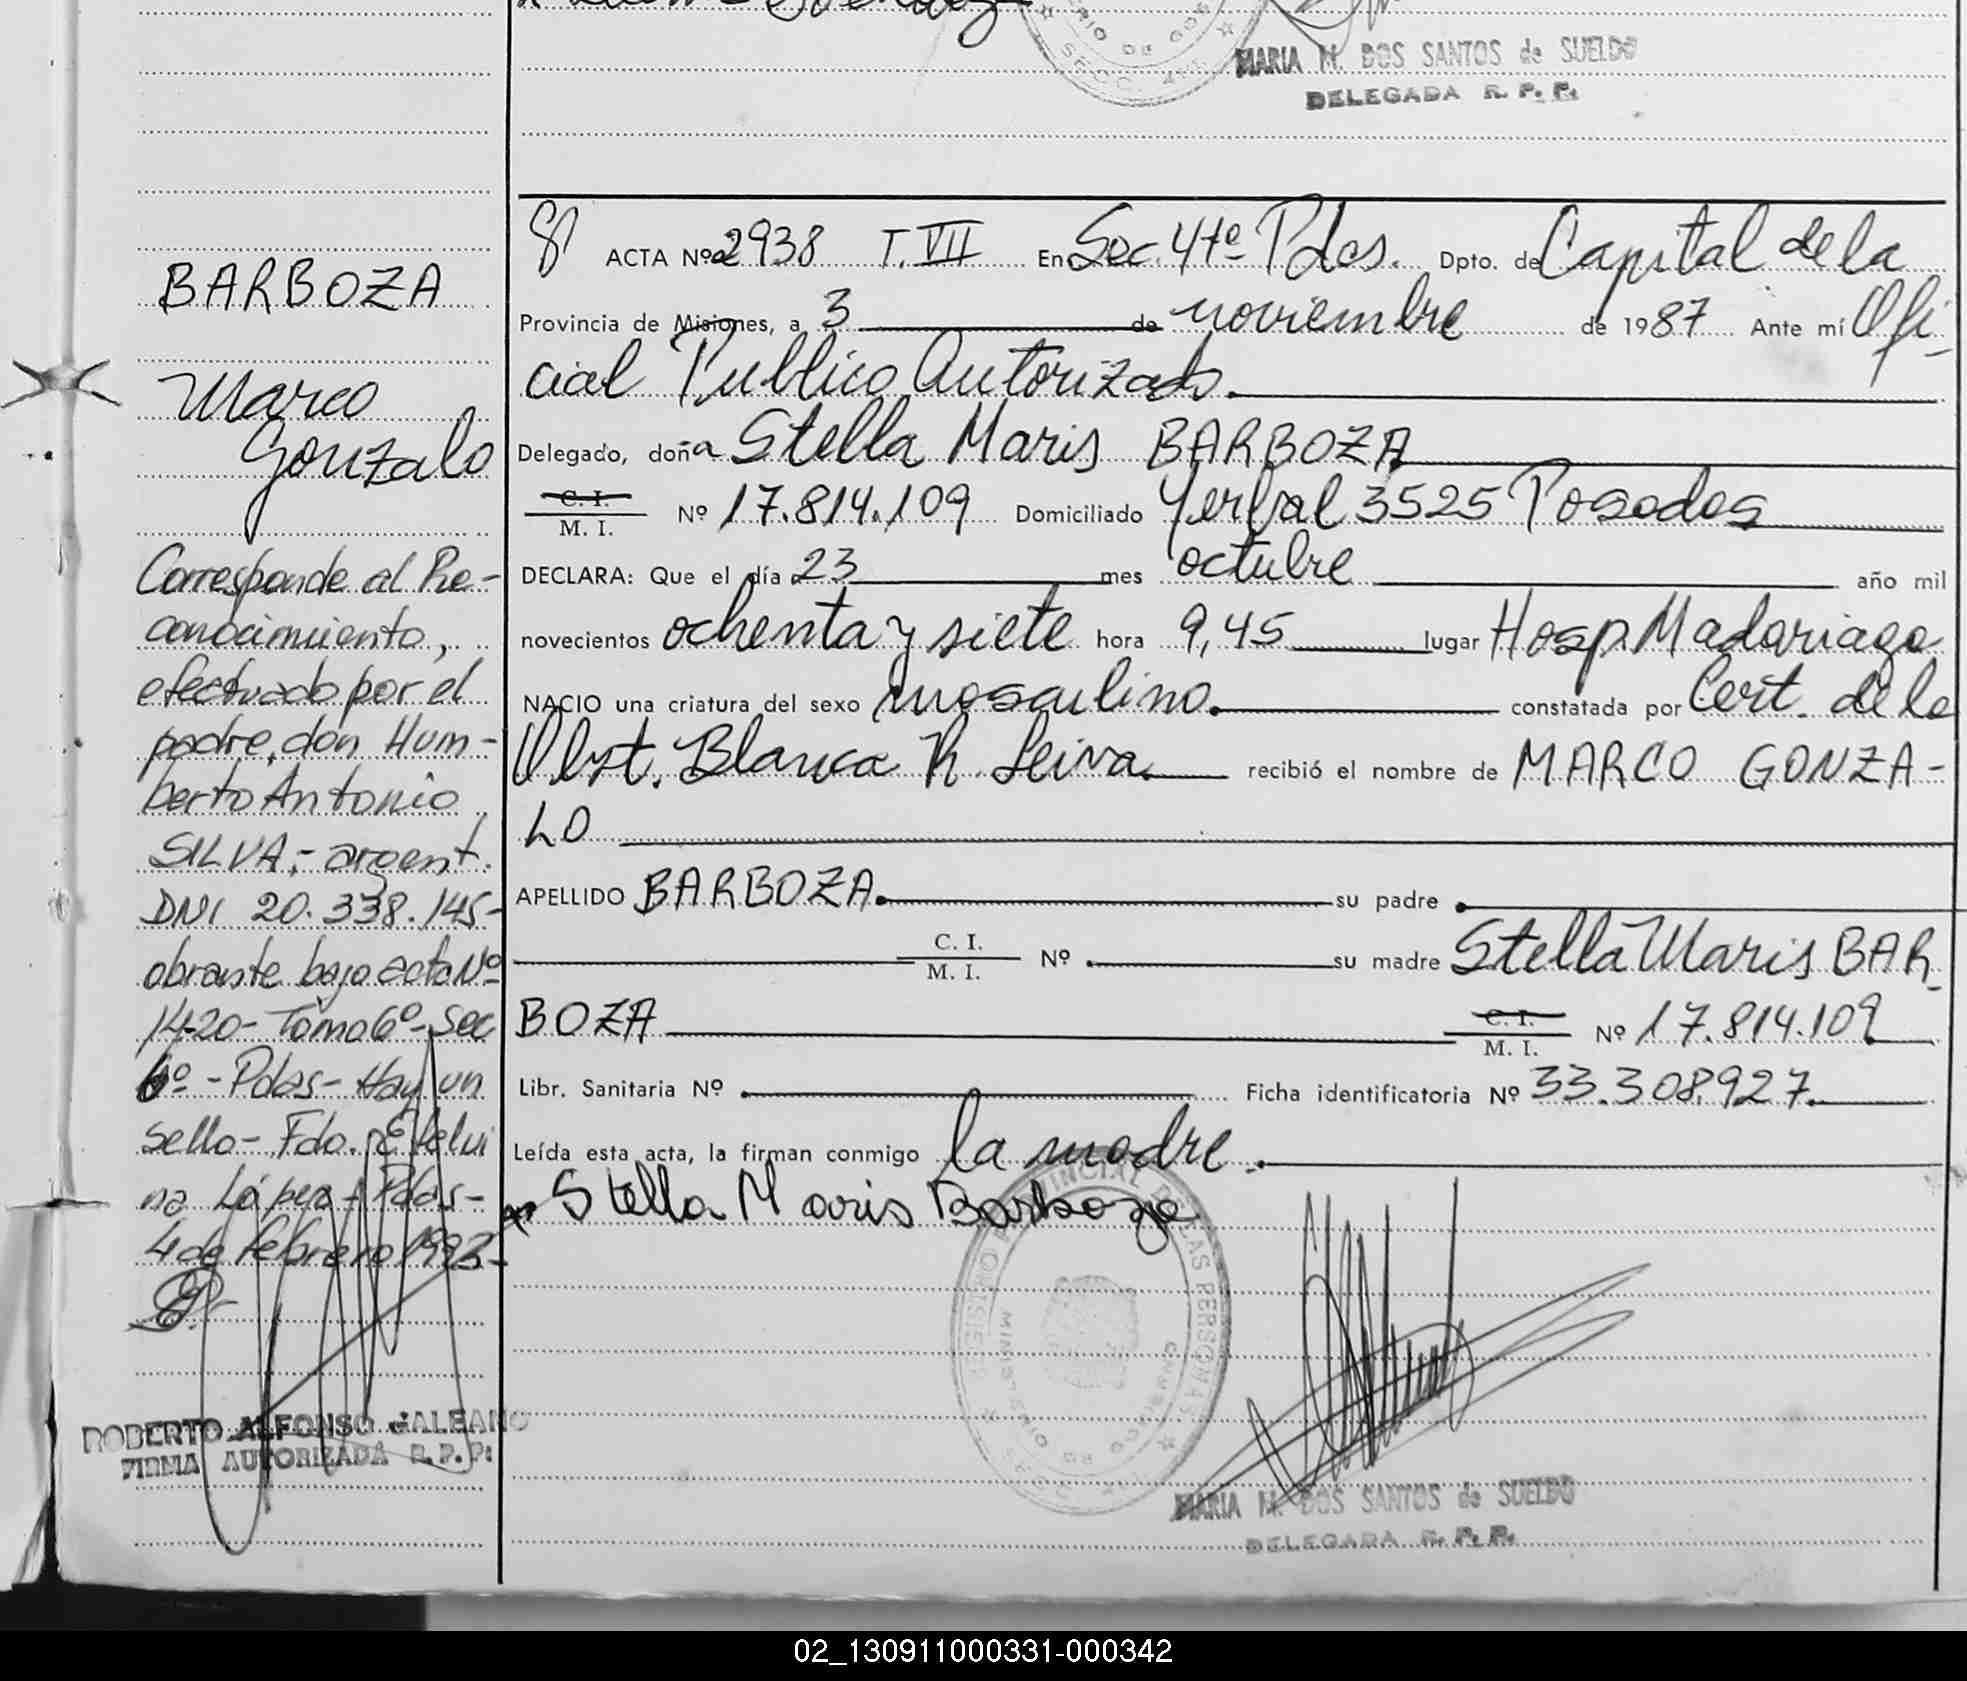 MARIA M. DOS SANTOS de SUELDO
DELEGADA R. P. P.
BARBOZA
Marco
Gonzalo
Corresponde al Re-
conocimiento,
efectuado por el
padre, don Hum-
berto Antonio
SILVA,- argent.
DNI 20.338.145-
obrante bajo acta Nº
1420- Tomo 6º- Sec
6º - Pdas- Hay un
sello- Fdo. Etelvi
na López- Pdas-
4 de febrero 1993-
ROBERTO ALFONSO GALEANO
FIRMA AUTORIZADA R. P. P.
ACTA Nº 2938 T. VII En Sec. 4ta Pdas. Dpto. de Capital de la
Provincia de Misiones, a 3 de noviembre de 1987 Ante mí Ofi-
cial Publico Autorizado.
Delegado, doña Stella Maris BARBOZA
C. I.
M. I. Nº 17.814.109 Domiciliado Yerbal 3525 Posadas
DECLARA: Que el día 23 mes octubre año mil
novecientos ochenta y siete hora 9,45 lugar Hosp. Madariaga
NACIO una criatura del sexo masculino. constatada por Cert. de la
Obst. Blanca R. Leiva. recibió el nombre de MARCO GONZA-
LO
APELLIDO BARBOZA. su padre
C. I.
M. I. Nº su madre Stella Maris BAR-
BOZA C. I.
M. I. Nº 17.814.109
Libr. Sanitaria Nº Ficha identificatoria Nº 33.308.927.
Leída esta acta, la firman conmigo la madre.
Stella Maris Barboza
REGISTRO PROVINCIAL DE LAS PERSONAS
MINISTERIO DE GOBIERNO
MARIA M. DOS SANTOS de SUELDO
DELEGADA R. P. P.
02_130911000331-000342